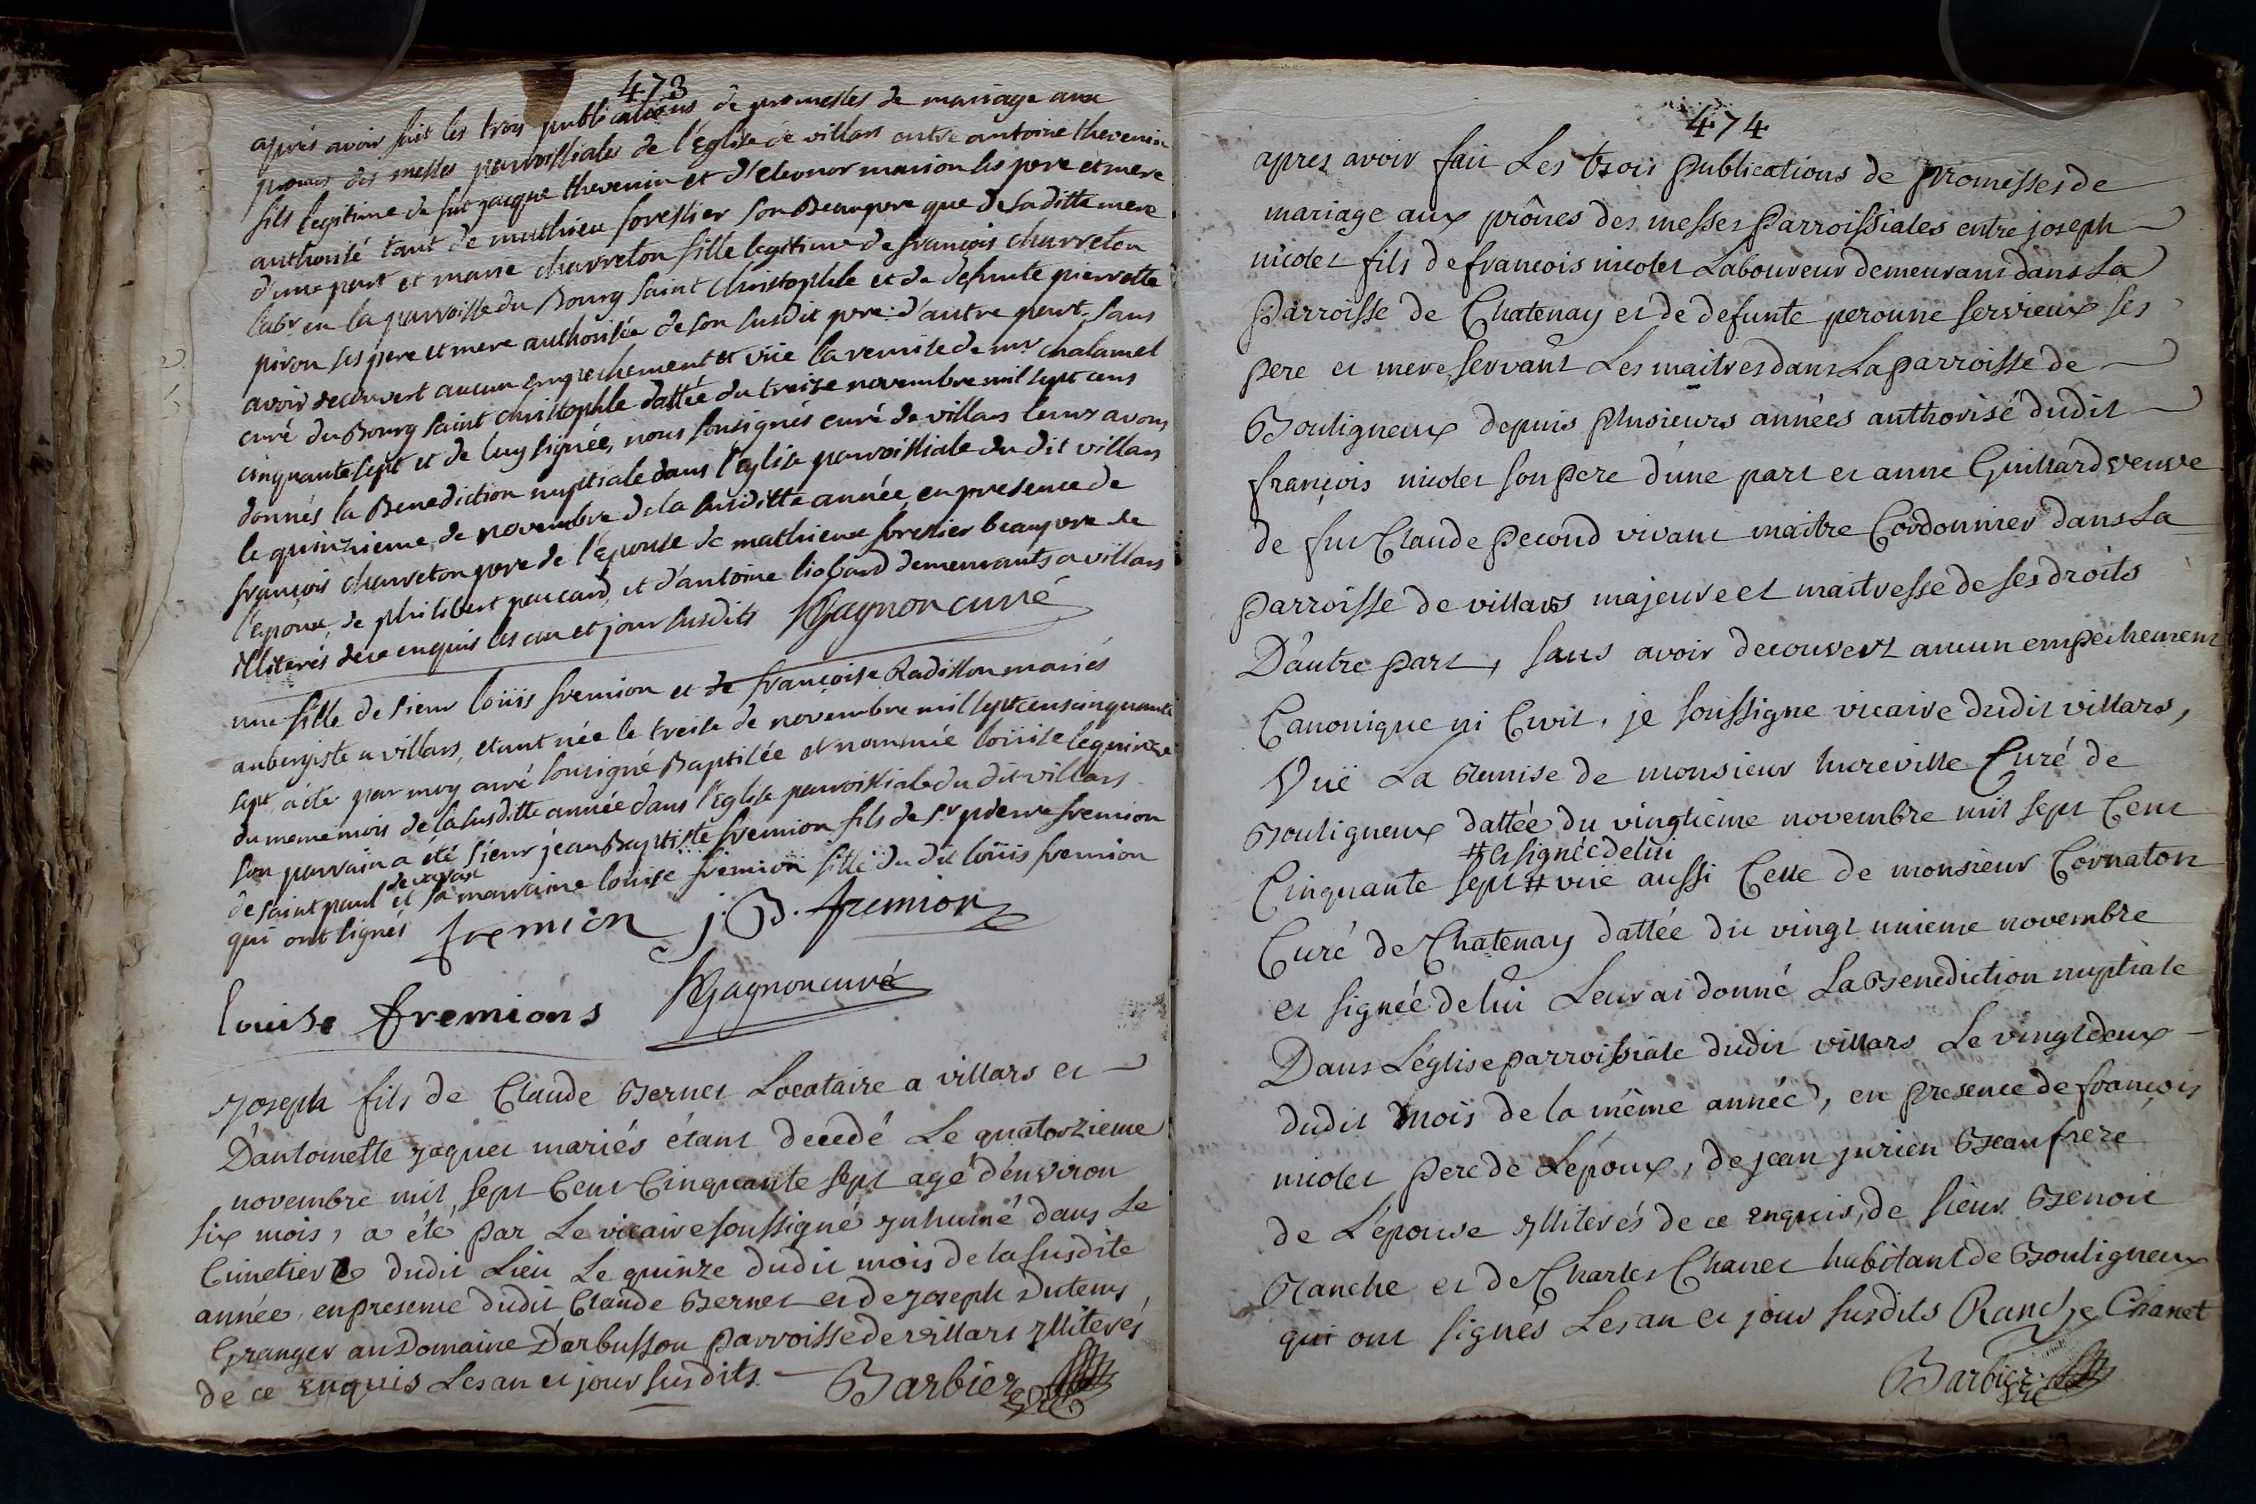 473
après avoir fait les trois publications de promesses de mariage aux
prones des messes parroissiales de l'Eglise de villars entre antoine thevenin
fils legitime de fut jacque thevenin et d'eleonor marion ses pere et mere
authorité tant de mathieu forestier son Beaupere que de saditte mere
d'une part et marie charreton fille legitime de françois charreton
labr en la parroisse du Bourg saint christophle et de defunte pierrette
piron ses pere et mere authorisée de son susdit pere d'autre part. sans
avoir decouvert aucun empechement et vüe la remise de mr chalamel
curé du Bourg saint christophle dattée du treize novembre mil sept cens
cinquante sept et de luy signée, nous sousignés curé de villars leurs avons
donnés la Benediction nuptiale dans l'eglise parroissiale du dit villars
le quinzieme de novembre de la susditte année, en presence de
françois charreton pere de l'epouse de mathieu forestier beaupere de
l'epoux, de philibert poucard, et d'antoine liobard demeurants a villars
illiterés de ce enquis les an et jour susdits Gagnon curé
une fille de sieur loüis fremion et de françoise Radisson mariés
aubergiste a villars, etant née le treise de novembre mil sept cens cinquante
sept a été par moy curé sousigné Baptisée et nommée loüise le quinze
du meme mois de la susditte année dans l'Eglise parroissiale du dit villars
son parrain a été sieur jean Baptiste fremion fils de sr pierre fremion
de saint paul de varax et sa marraine louise fremion fille du dit loüis fremion
qui ont signés fremion j. B. fremion
louise fremions Gagnon curé
Joseph fils de Claude Bernet Locataire a villars et
D'antoinette jaquet mariés étant decedé Le quatorzieme
novembre mil sept Cent Cinquante sept agé d'environ
six mois, a été par Le vicaire soussigné inhumé dans Le
Cimetiere dudit Lieu Le quinze dudit mois de la susdite
année, en presence dudit Claude Bernet et de joseph Dutems
Granger au Domaine Darbusson parroisse de villars illiterés
de ce enquis Les an et jour susdits. Barbier vic
474
apres avoir fait Les trois publications de promesses de
mariage aux prônes des messes Parroissiales entre joseph
nicolet fils de francois nicolet Laboureur demeurant dans La
Parroisse de Chatenay et de defunte peroune servieux ses
Pere et mere servant Les maitres dans La parroisse de
Bouligneux depuis plusieurs années authorisé dudit
françois nicolet son pere d'une part et anne Guillard veuve
de fut Claude Pecoud vivant maitre Cordonnier dans La
Parroisse de villars majeure et maitresse de ses droits
D'autre Part, sans avoir decouvert aucun empechement
Canonique ni Civil. je soussigne vicaire dudit villars,
Vuë La Remise de monsieur hureville Curé de
Bouligneux dattée du vingtieme novembre mil sept Cent
# et signée de lui
Cinquante sept # vuë aussi Celle de monsieur Cornaton
Curé de Chatenay dattée du vingt unieme novembre
et signée de lui Leur ai donné La Benediction nuptiale
Dans L'église parroissiale dudit villars Le vingt deux
dudit mois de la même année, en presence de françois
nicolet pere de L'époux, de jean jurien Beau frere
de L'epouse illiterés de ce enquis, de sieur Benoit
Ranche et de Charles Chanet habitant de Bouligneux
qui ont signés Les an et jour susdits Ranche Chanet
Barbier vic